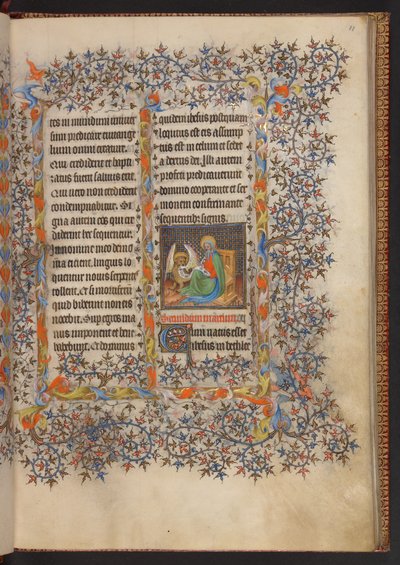 tes in mundum uniuer
sum predicate euuange
lium omni creature.
Qui crediderit et bapti
zatus fuerit saluus erit.
Qui uero non crediderit
condempnabitur. Si
gna autem eos qui cre
diderint hec sequentur.
In nomine meo demo
nia eicient. linguis lo
quentur nouis serpentes
tollent. Et si mortiferum
quid biberint non eis
nocebit. Super egros ma
nus imponent et bene
habebunt. Et dominus
quidem ihesus postquam
locutus est eis assump
tus est in celum et sedet
a dextris dei. Illi autem
profecti predicauerunt
domino cooperante et ser
monem confirmante
sequentibus signis.
Secundum matheum
Cum natus esset
ihesus in bethlee